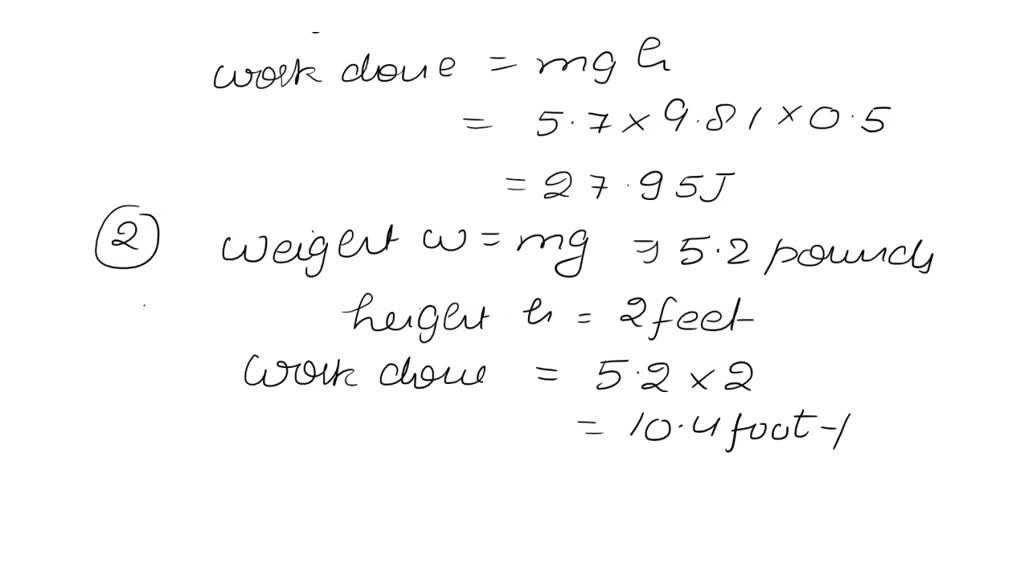 work done = mgh
= 5.7 × 9.81 × 0.5
= 27.95J
② weight w = mg ⇒ 5.2 pounds
height h = 2 feet
work done = 5.2 × 2
= 10.4 foot-